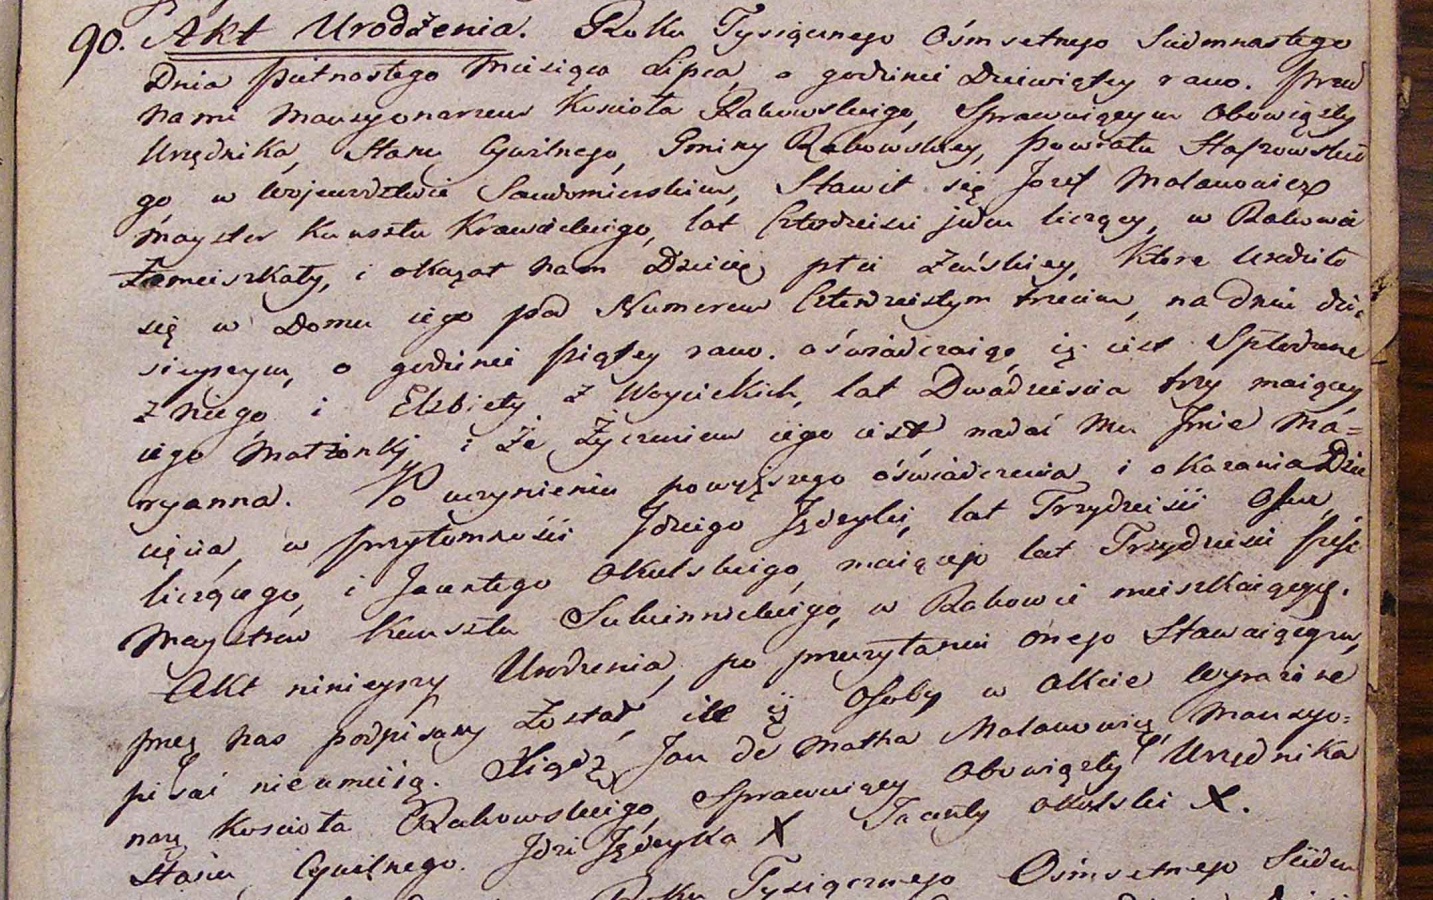 90. Akt Urodzenia. Roku Tysiącznego Ośmsetnego Siedmnastego
Dnia Pietnastego Miesiąca Lipca, o godzinie Dziewiątey rano. Przed
nami Mansyonarzem Kościoła Rakowskiego, Sprawuiącym Obowiązky
Urzędnika, Stanu Cywilnego, Gminy Rakowskiey, Powiatu Staszowskie
go w Wojewodztwie Sandomierskim, Stawił się Jozef Malanowicz
Mayster Kunsztu Krawieckiego, lat Czterdzieści jeden liczący, w Rakowie
Zamieszkały, i okazał nam Dziecię płci Żeńskiey, które urodziło
się w Domu iego pod Numerem Czterdziestym trzecim, na dniu dzi:
sieyszym, o godzinie piątey rano. oświadczaiąc, iż iest Spłodzone
z niego i Elzbiety z Woycickich, lat Dwadzieścia trzy maiącey
iego Małżonky i że Życzeniem iego iest nadać mu Jmie Ma=
ryanna. Po uczynieniu powyższego oświadczenia i okazania Dzie
cięcia, w przytomności Jdziego lat Trzydzieści Ośm,
liczącego, i Jacentego Okulskiego, maiącego lat Trzydzieści sześć
Maystrów Kunsztu Sukiennickiego, w Rakowie mieszkaiących.
Akt ninieyszy Urodzenia, po przeczytaniu onego Stawaiącym,
przez nas podpisany Został, ile iż Osoby w Akcie wyrażone
pisać nieumieią. Xiądz Jan de Matha Malanowicz Mansyo=
narz Kościoła Rakowskiego Sprawuiący Obowiązky Urzędnika
Stanu Cywilnego. Jdzi X Jacenty Okulski X.
Roku Tysiącznego Ośmsetnego Siedm